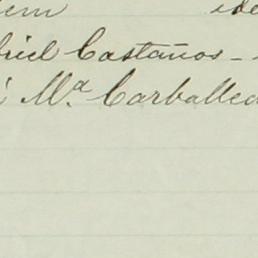 em ide
briel Castaños -
i Mª Carballeda